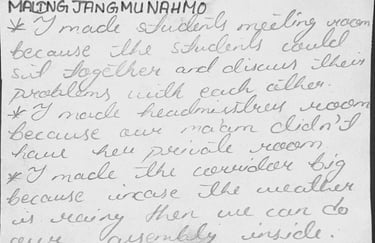 MALING JANGMU NAHMO
* I made students meeting room
because the students could
sit together and discuss their
problems with each other.
* I made headmistress room
because our ma'am didn't
have her private room
* I made the corridor big
because incase the weather
is rainy then we can do
our assembly inside.